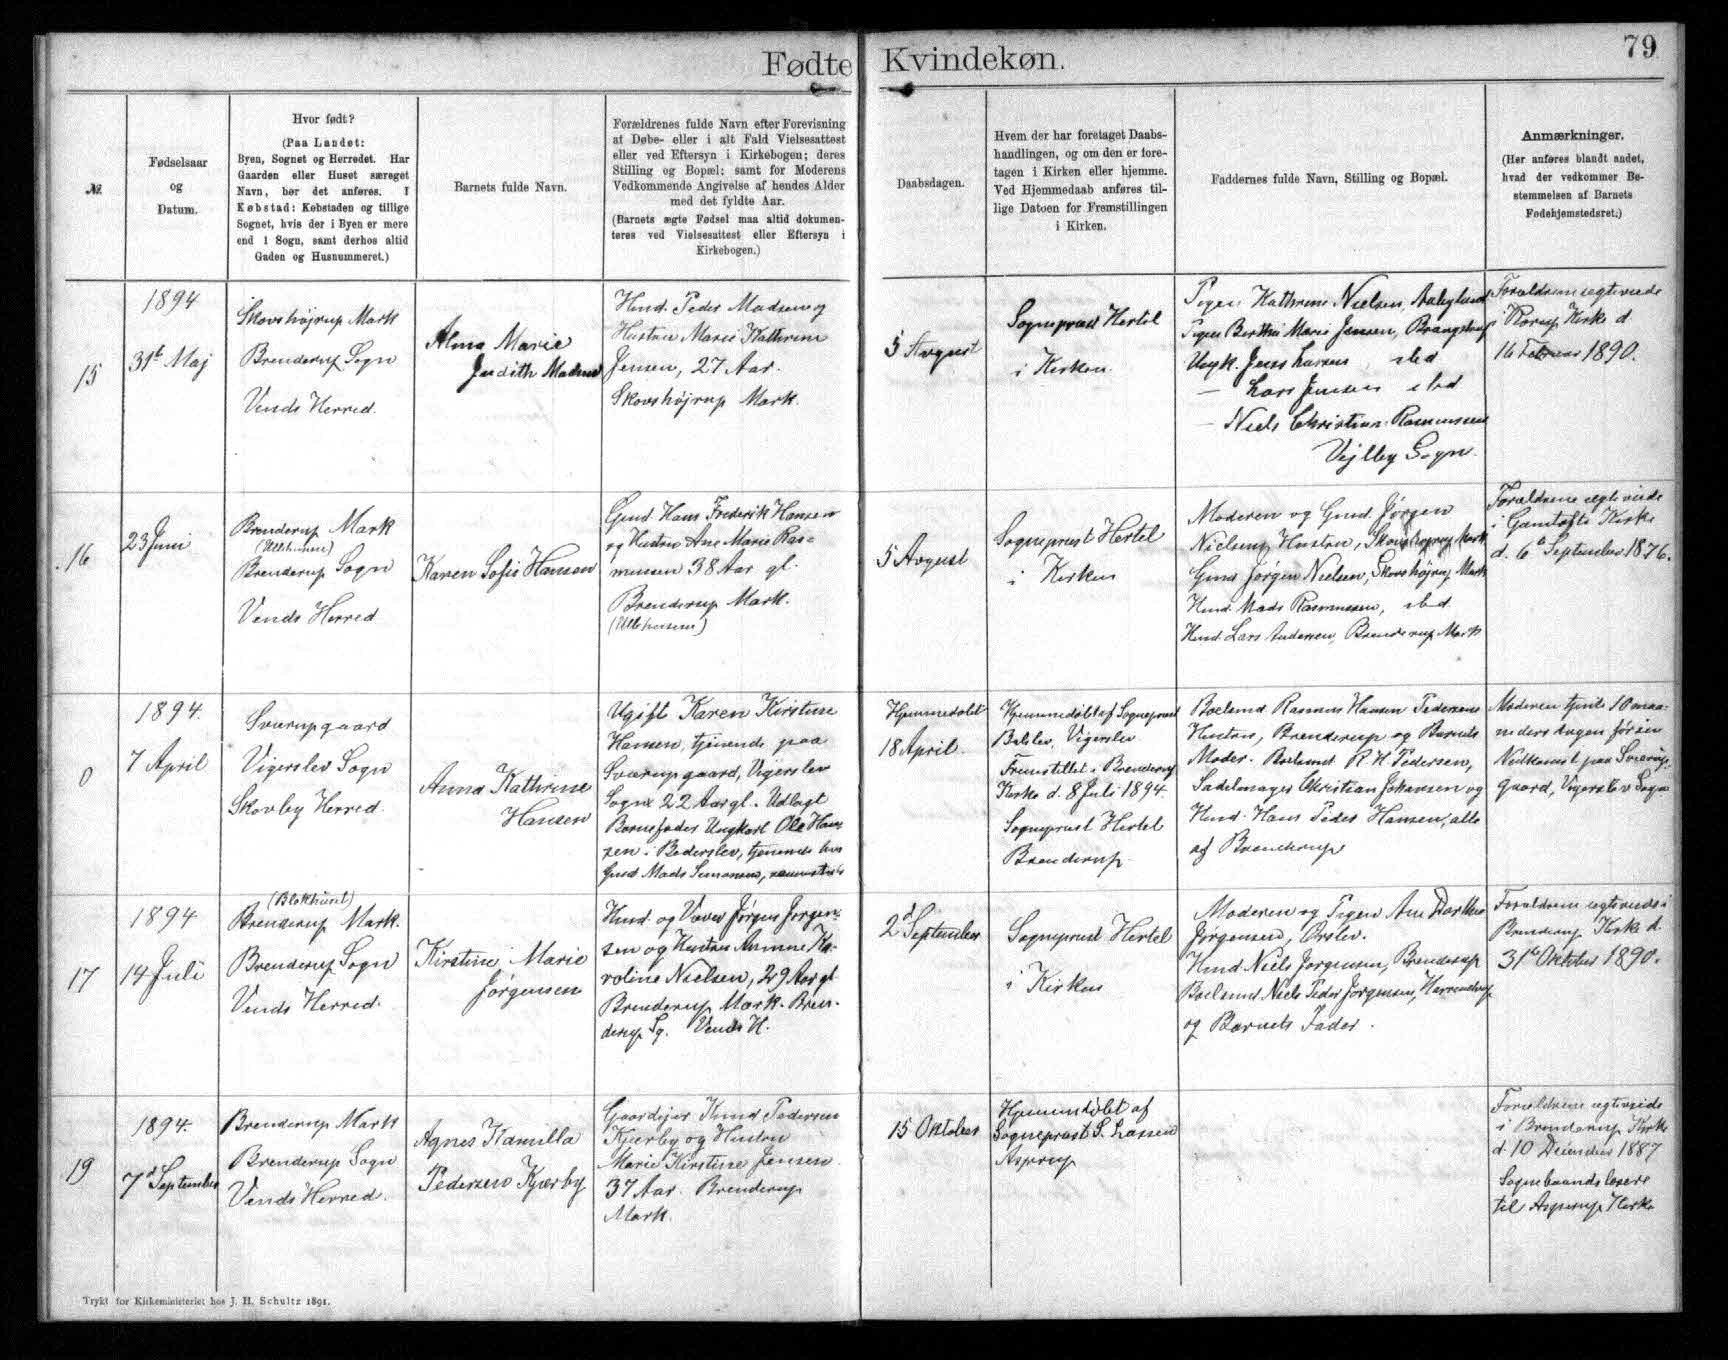 Fødte Kvindekøn.
79
№
Fødselsaar
og
Datum.
Hvor født?
(Paa Landet:
Byen, Sognet og Herredet. Har
Gaarden eller Huset særeget
Navn, bør det anføres. I
Købstad: Købstaden og tillige
Sognet, hvis der i Byen er mere
end 1 Sogn, samt derhos altid
Gaden og Husnummeret.)
Barnets fulde Navn.
Forældrenes fulde Navn efter Forevisning
af Døbe- eller i alt Fald Vielsesattest
eller ved Eftersyn i Kirkebogen; deres
Stilling og Bopæl; samt for Moderens
Vedkommende Angivelse af hendes Alder
med det fyldte Aar.
(Barnets ægte Fødsel maa altid dokumen-
teres ved Vielsesattest eller Eftersyn i
Kirkebogen.)
Daabsdagen.
Hvem der har foretaget Daabs-
handlingen, og om den er fore-
tagen i Kirken eller hjemme.
Ved Hjemmedaab anføres til-
lige Datoen for Fremstillingen
i Kirken.
Faddernes fulde Navn, Stilling og Bopæl.
Anmærkninger.
(Her anføres blandt andet,
hvad der vedkommer Be-
stemmelsen af Barnets
Fødehjemstedsret.)
15
1894
31t Maj
Skovshøjrup Mark
Brenderup Sogn
Vends Herred.
Alma Marie
Judith Madsen
Hmd. Peder Madsen og
Hustru Marie Kathrine
Jensen, 27 Aar.
Skovshøjrup Mark.
5 Avgust
Sognepræst Hertel
i Kirken
Pigen Kathrine Nielsen,
Pigen Berthe Marie Jensen,
Ungk. Jens Larsen ibd
— Lars Jensen ibd
— Niels Christian Rasmussen
Vejlby Sogn.
Forældrene ægteviede
i Rorup Kirke d
16 Februar 1890.
16
23 Juni
Brenderup Mark
(Ullehusene)
Brenderup Sogn
Vends Herred
Karen Sofie Hansen
Gmd. Hans Frederik Hansen
og Hustru Ane Marie Ras-
mussen 38 Aar gl.
Brenderup Mark.
(Ullehusene)
5 Avgust
Sognepræst Hertel
i Kirken
Moderen og Gmd. Jørgen
Nielsens Hustru, Skovshøjrup Mark
Gmd Jørgen Nielsen, Skovshøjrup Mark
Hmd. Mads Rasmussen, ibd
Hmd. Lars Andersen, Brenderup Mark
Forældrene ægteviede
i Gamtofte Kirke
d. 6te September 1876.
0
1894.
7 April
Sværupgaard
Vigerslev Sogn
Skovby Herred.
Anna Kathrine
Hansen
Ugift Karen Kirstine
Hansen, tjenende paa
Sværupgaard, Vigerslev
Sogn 22 Aar gl. Udlagt
Barnefader Ungkarl Ole Han-
sen i Bederslev, tjenende hos
Gmd Mads Simonsen,
Hjemmedøbt
18 April.
Hjemmedøbt af Sognepræst
Balslev, Vigerslev
Fremstillet i Brenderup
Kirke d. 8 Juli 1894.
Sognepræst Hertel
Brenderup
Boelsmd Rasmus Hansen Pedersens
Hustru, Brenderup og Barnets
Moder. Boelsmd R. H. Pedersen,
Sadelmager Christian Johansen og
Hmd. Hans Peder Hansen, alle
af Brenderup
Moderen tjente 10 maa-
neders dagen før sin
Nedkomst paa Sværup-
gaard, Vigerslev Sogn
17
1894
14 Juli
(Blokhuset)
Brenderup Mark.
Brenderup Sogn
Vends Herred.
Kirstine Marie
Jørgensen
Hmd. og Væver Jørgen Jørgen-
sen og Hustru Anna Ka-
roline Nielsen, 29 Aar gl
Brenderup Mark. Bren-
derup Sg. Vends H.
2d September
Sognepræst Hertel
i Kirken
Moderen og Pigen Ane Dorthea
Jørgensen, Ørslev.
Hmd Niels Jørgensen, Brenderup
Boelsmd Niels Peder Jørgensen,
og Barnets Fader.
Forældrene ægteviede i
Brenderup Kirke d.
31te Oktober 1890.
19
1894.
7d September
Brenderup Mark
Brenderup Sogn
Vends Herred.
Agnes Kamilla
Pedersen Kjærby
Gaardejer Knud Pedersen
Kjærby og Hustru
Marie Kirstine Jensen
37 Aar. Brenderup
Mark.
15 Oktober
Hjemmedøbt af
Sognepræst S. Lassen
Asperup
Forældrene ægteviede
i Brenderup Kirke
d 10 December 1887
Sognebaandsløsere
til Asperup Kirke
Trykt for Kirkeministeriet hos J. H. Schultz 1891.